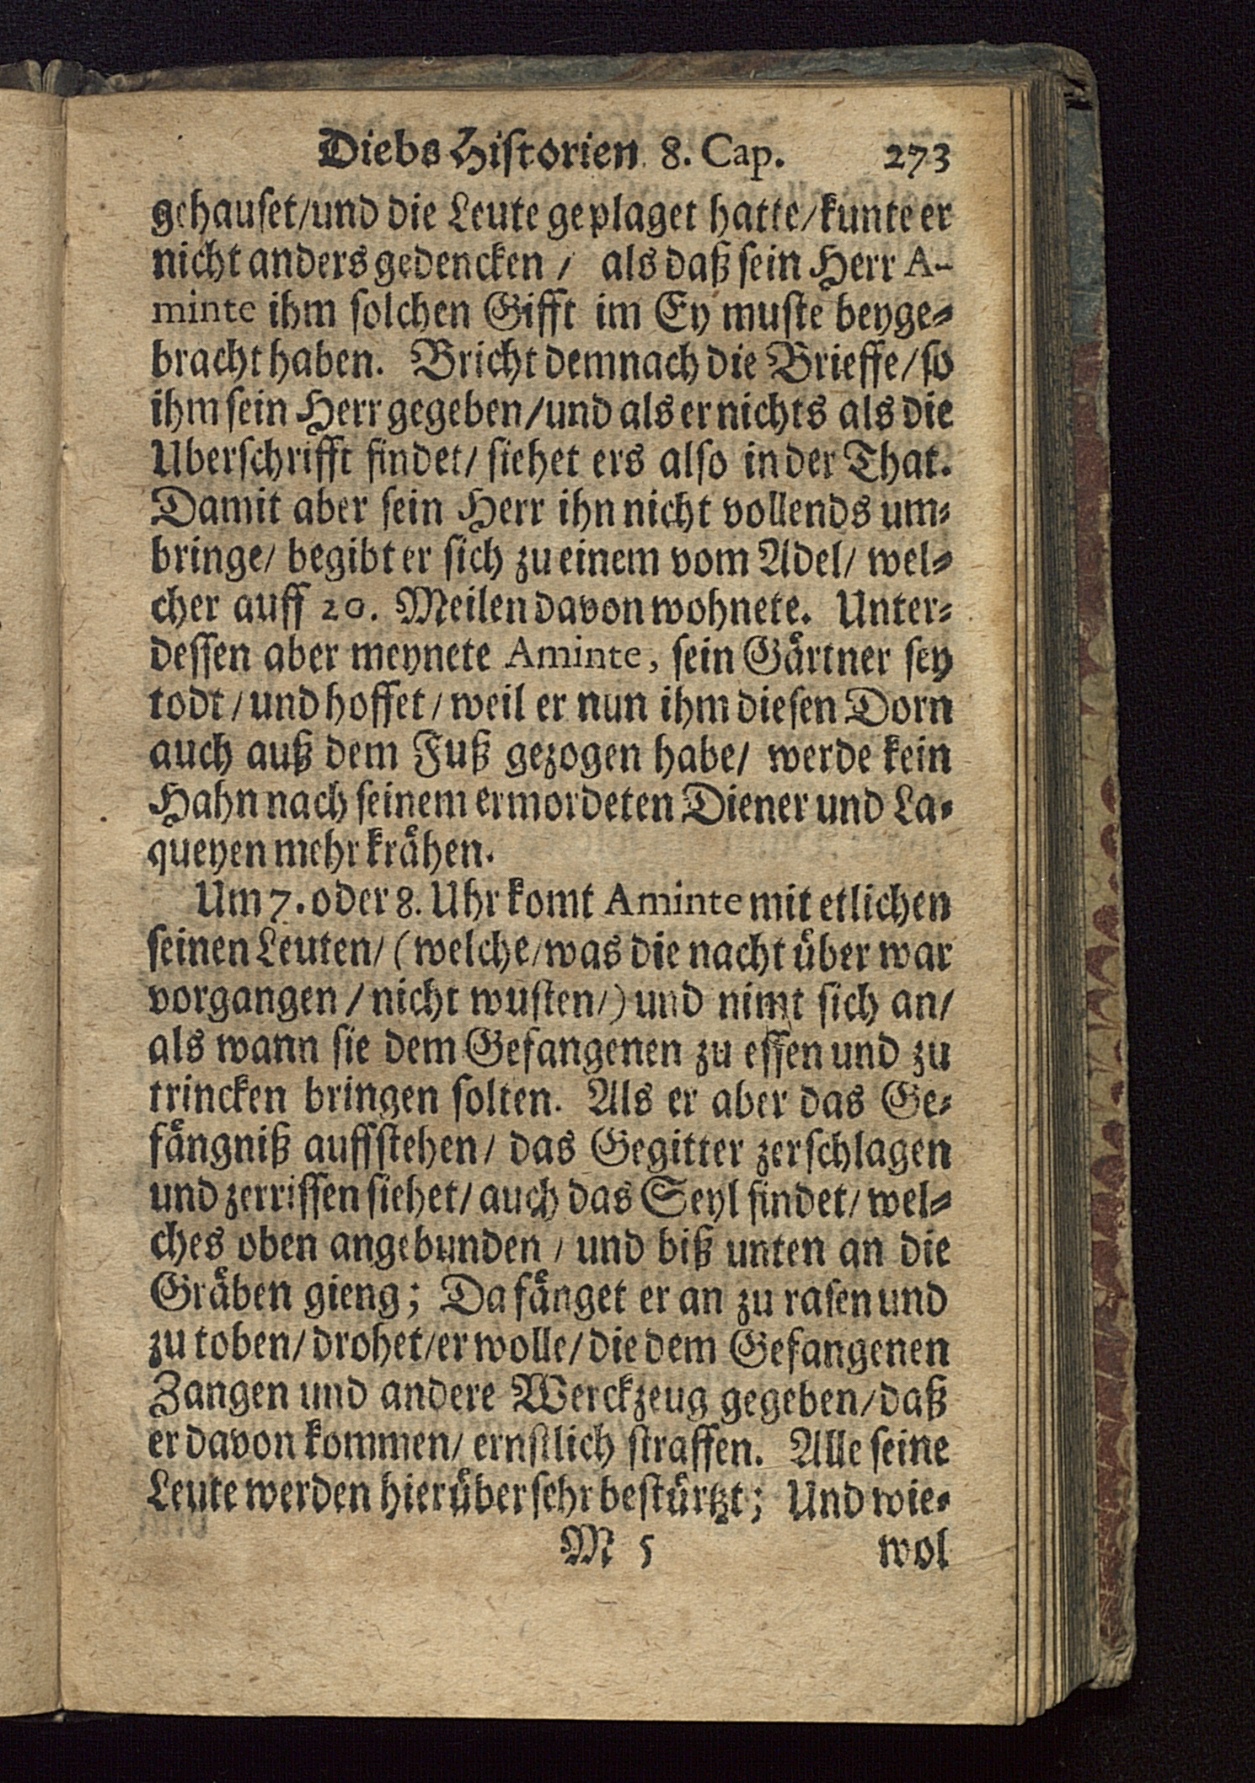 Diebs Historien 8. Cap. 273
gehauset/und die Leute geplaget hatte/kunte er
nicht anders gedencken / als daß sein Herr A-
minte ihm solchen Gifft im Ey muste beyge-
bracht haben. Bricht demnach die Brieffe/so
ihm sein Herr gegeben/und als er nichts als die
Uberschrifft findet/ siehet ers also in der That.
Damit aber sein Herr ihn nicht vollends um-
bringe/ begibt er sich zu einem vom Adel/ wel-
cher auff 20. Meilen davon wohnete. Unter-
dessen aber meynete Aminte, sein Gärtner sey
todt/und hoffet/weil er nun ihm diesen Dorn
auch auß dem Fuß gezogen habe/ werde kein
Hahn nach seinem ermordeten Diener und La-
queyen mehr krähen.
Um 7. oder 8. Uhr komt Aminte mit etlichen
seinen Leuten/ (welche/was die nacht über war
vorgangen/nicht wusten/) und nimt sich an/
als wann sie dem Gefangenen zu essen und zu
trincken bringen solten. Als er aber das Ge-
fängniß auffstehen/ das Gegitter zerschlagen
und zerrissen siehet/ auch das Seyl findet/ wel-
ches oben angebunden / und biß unten an die
Gräben gieng; Da fänget er an zu rasen und
zu toben/drohet/er wolle/die dem Gefangenen
Zangen und andere Werckzeug gegeben/daß
er davon kommen/ ernstlich straffen. Alle seine
Leute werden hierüber sehr bestürtzt; Und wie-
M 5 wol